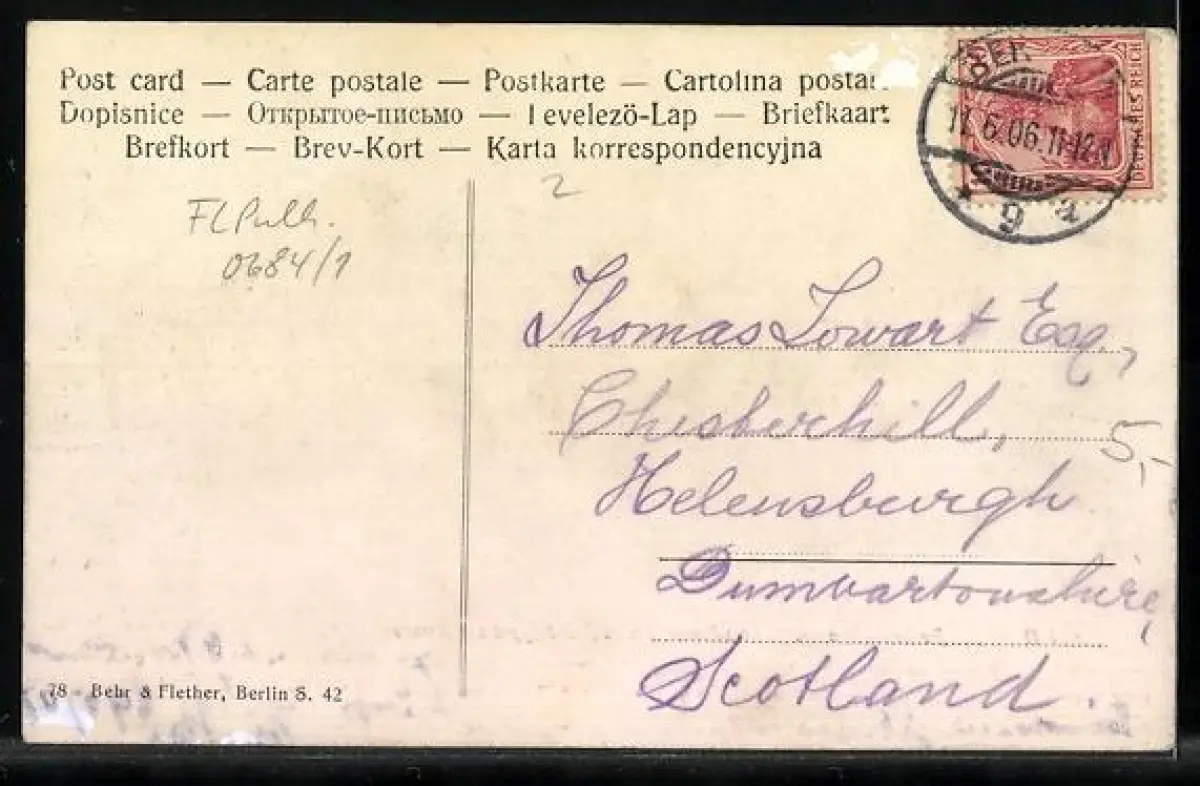 Post card — Carte postale — Postkarte — Cartolina postal
Dopisnice — Открытое-письмо — Levelezö-Lap — Briefkaart
Brefkort — Brev-Kort — Karta korrespondencyjna
BER
11.6.06.11-12V
* 9 a
DEUTSCHES REICH
2
0684/1
Thomas Lowart Esq.,
Chesterhill,
5,-
Helensburgh
Dumbartonshire,
Scotland.
78 Behr & Flether, Berlin S. 42